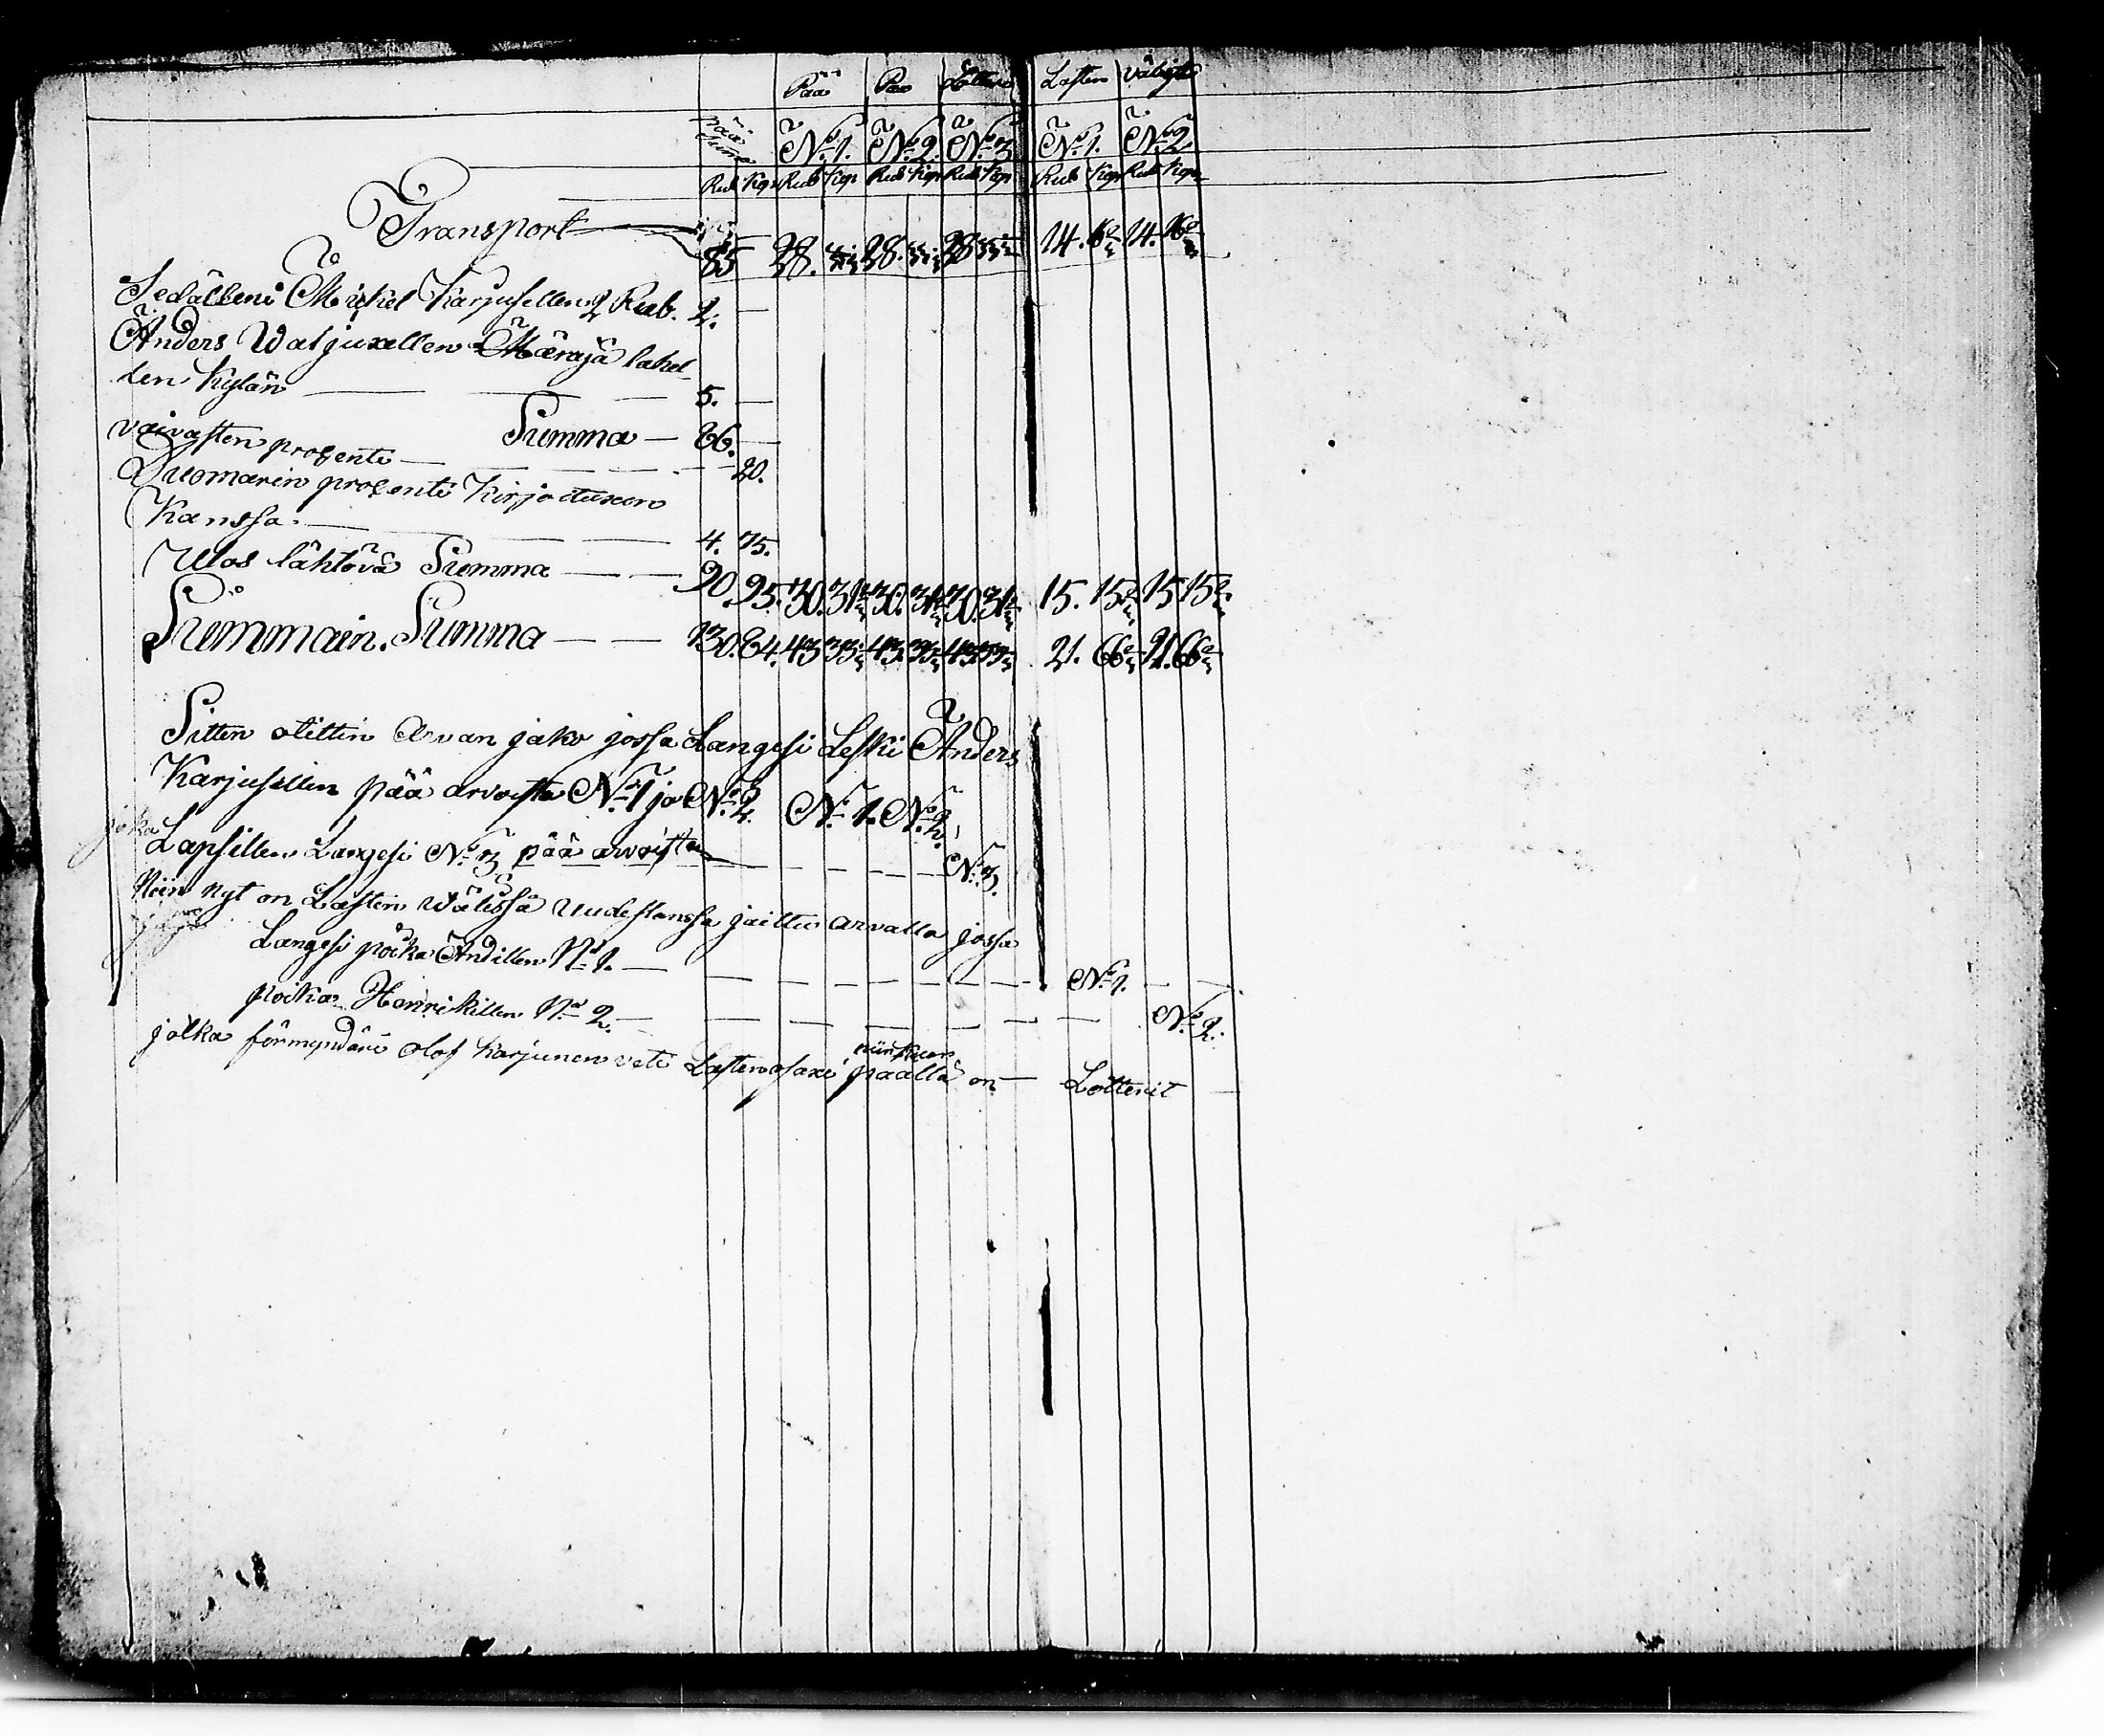 Pää Pää Lotteri Lasten väligte
pää Summa No 1. No 2. No 3 No 1. No 2
Rub Kop Rub Kop Rub Kop Rub Kop Rub Kop Rub Kop
Transport 85 28. 28. 28 14. 14.
Sedälleni Mickel Karjusellen 2 Rub. 2. —
Anders Waljuxellen Märajä lahel-
den Kylän — 5. —
Summa — 86. —
vaivasten prosenti — 20.
Duomarin prosenti Kirjoituxen
Kanssa. — 4. 75.
Ulos lähtövä Summa — 20. 25. 30. 31 30. 31 30. 31 15. 15 15 15
Summain. Summa — 130. 64. 43 33 43. 33 43. 33 21. 66 21. 66
Sitten otettin Arvan jako jossa Langesi Leski Anders
Karjusellen pää arvoista No 1 ja No 2. No 1. No 2.
joka
Lapsillen Langesi No 3 pää arvoista — No 3.
Niin nyt on Lasten wälissä Uudestanssa jaittu arvalla jossa
Langesi poika Andillen No 1. — No 1. —
poika Henrikillen No 2. — No 2.
jolka förmyndäri Olof Karjunen veti Lasten osaxi niin kuin päällä on — Lotterit